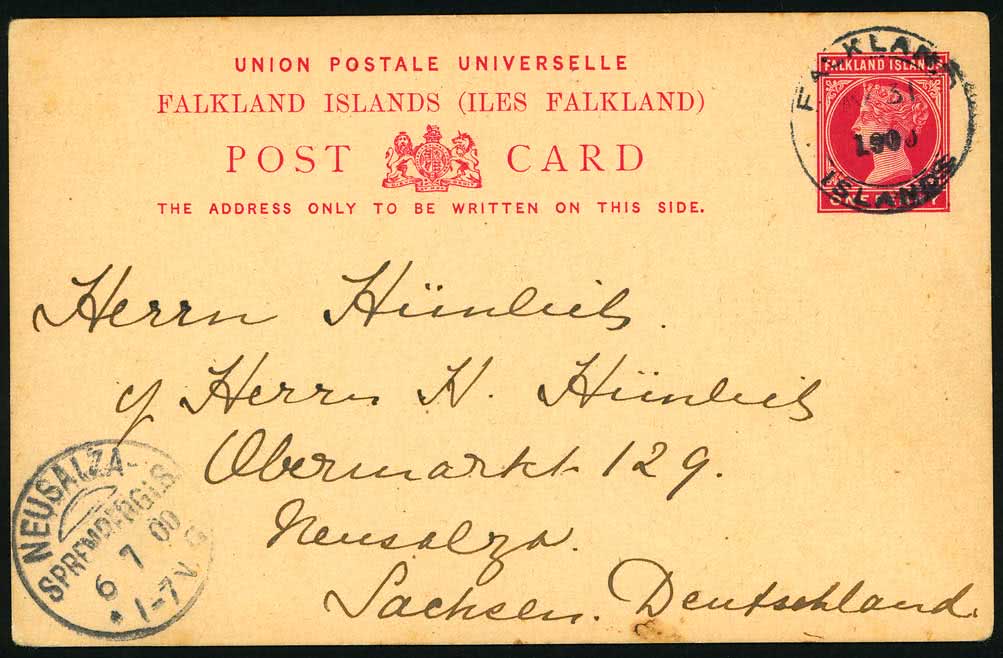 UNION POSTALE UNIVERSELLE
FALKLAND ISLANDS (ILES FALKLAND)
POST CARD
THE ADDRESS ONLY TO BE WRITTEN ON THIS SIDE.
FALKLAND ISLANDS
FALKLAND
31
1900
ISLANDS
Herrn Hünlich.
c/ Herrn H. Hünlich
Obermarkt 129.
Neusalza.
Sachsen. Deutschland.
NEUSALZA-
SPREMBERG i. S.
6 7 00
* 1-7 V.